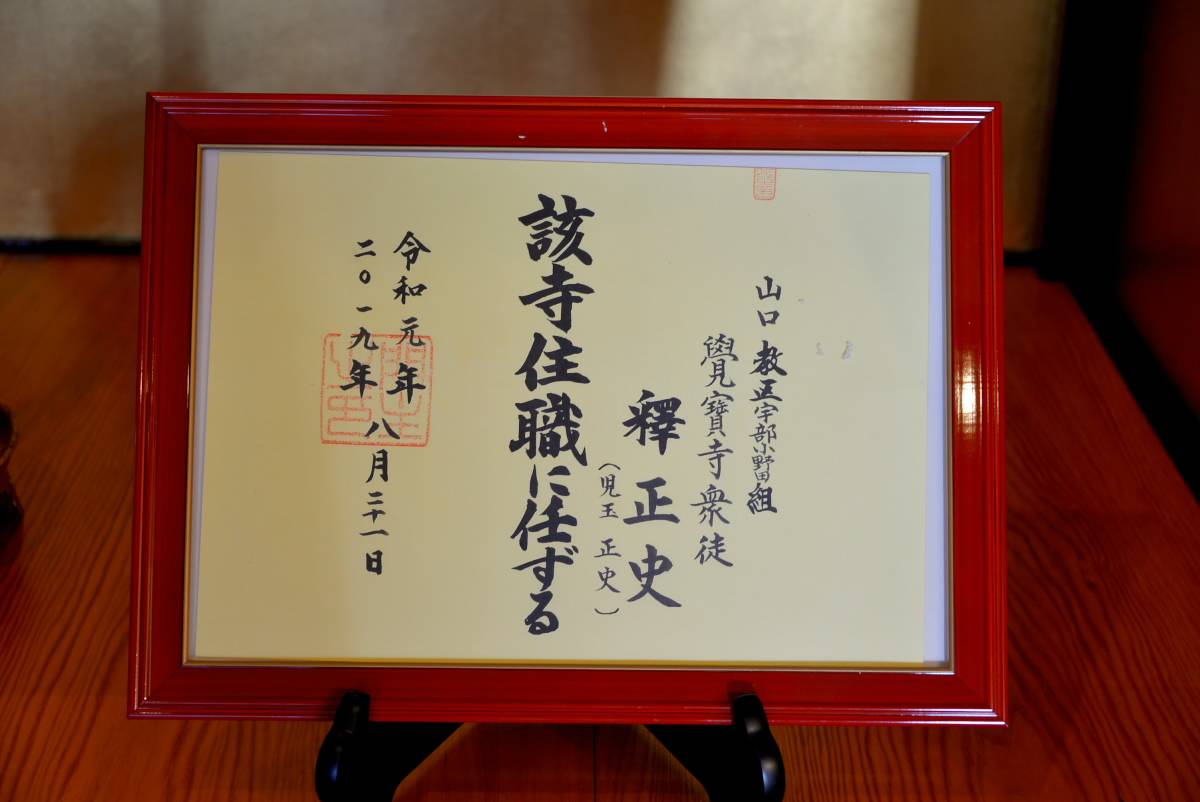 山口教区宇部小野田組
覺寶寺衆徒
釋正史
（児玉 正史）
該寺住職に任ずる
令和元年八月二十一日
二〇一九年